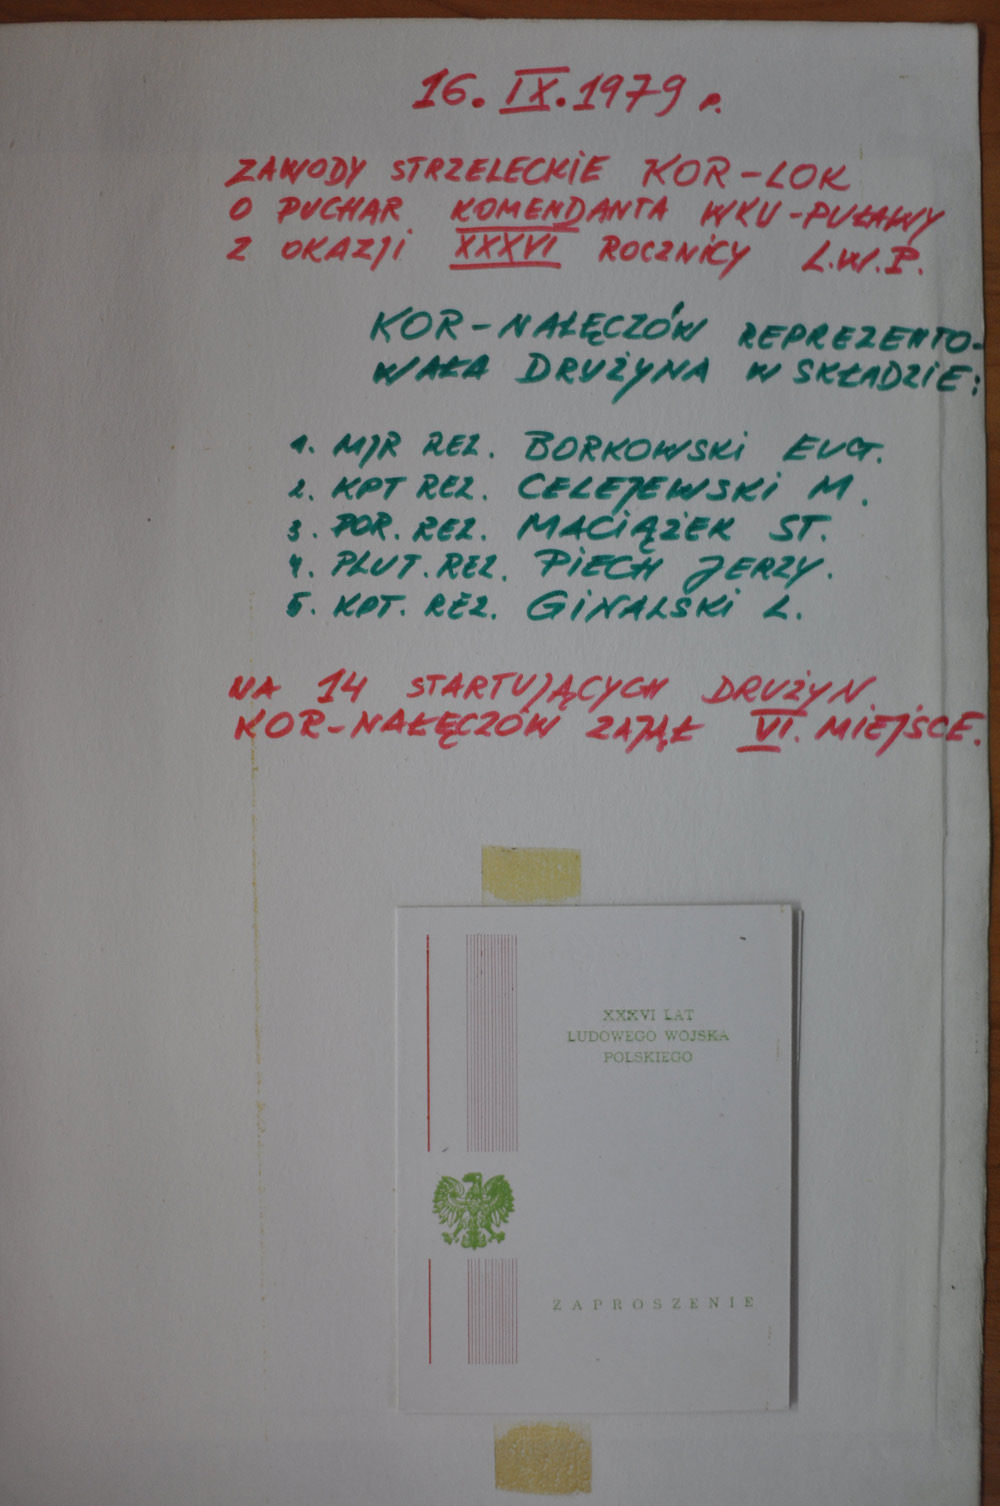 16. IX. 1979 r.
ZAWODY STRZELECKIE KOR-LOK
O PUCHAR KOMENDANTA WKU-PUŁAWY
Z OKAZJI XXXVI ROCZNICY L.W.P.
KOR-NAŁĘCZÓW REPREZENTO-
WAŁA DRUŻYNA W SKŁADZIE:
1. MJR REZ. BORKOWSKI EUG.
2. KPT REZ. CELEJEWSKI M.
3. POR. REZ. MACIĄŻEK ST.
4. PLUT. REZ. PIECH JERZY.
5. KPT. REZ. GINALSKI L.
NA 14 STARTUJĄCYCH DRUŻYN
KOR-NAŁĘCZÓW ZAJĄŁ VI. MIEJSCE.
XXXVI LAT
LUDOWEGO WOJSKA
POLSKIEGO
ZAPROSZENIE